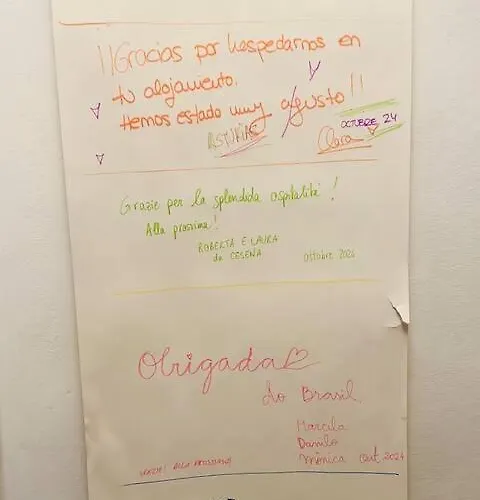 ¡¡Gracias por hospedarnos en
tu alojamiento.
Hemos estado muy agusto!!
ASTURIAS
OCTUBRE 24
Clara
Grazie per la splendida ospitalità!
Alla prossima!
ROBERTA E LAURA
da CESENA
Ottobre 2024
Obrigada
do Brasil.
Marcela
Danilo
Mônica Out 2024
GRAZIE! ALLA PROSSIMA!